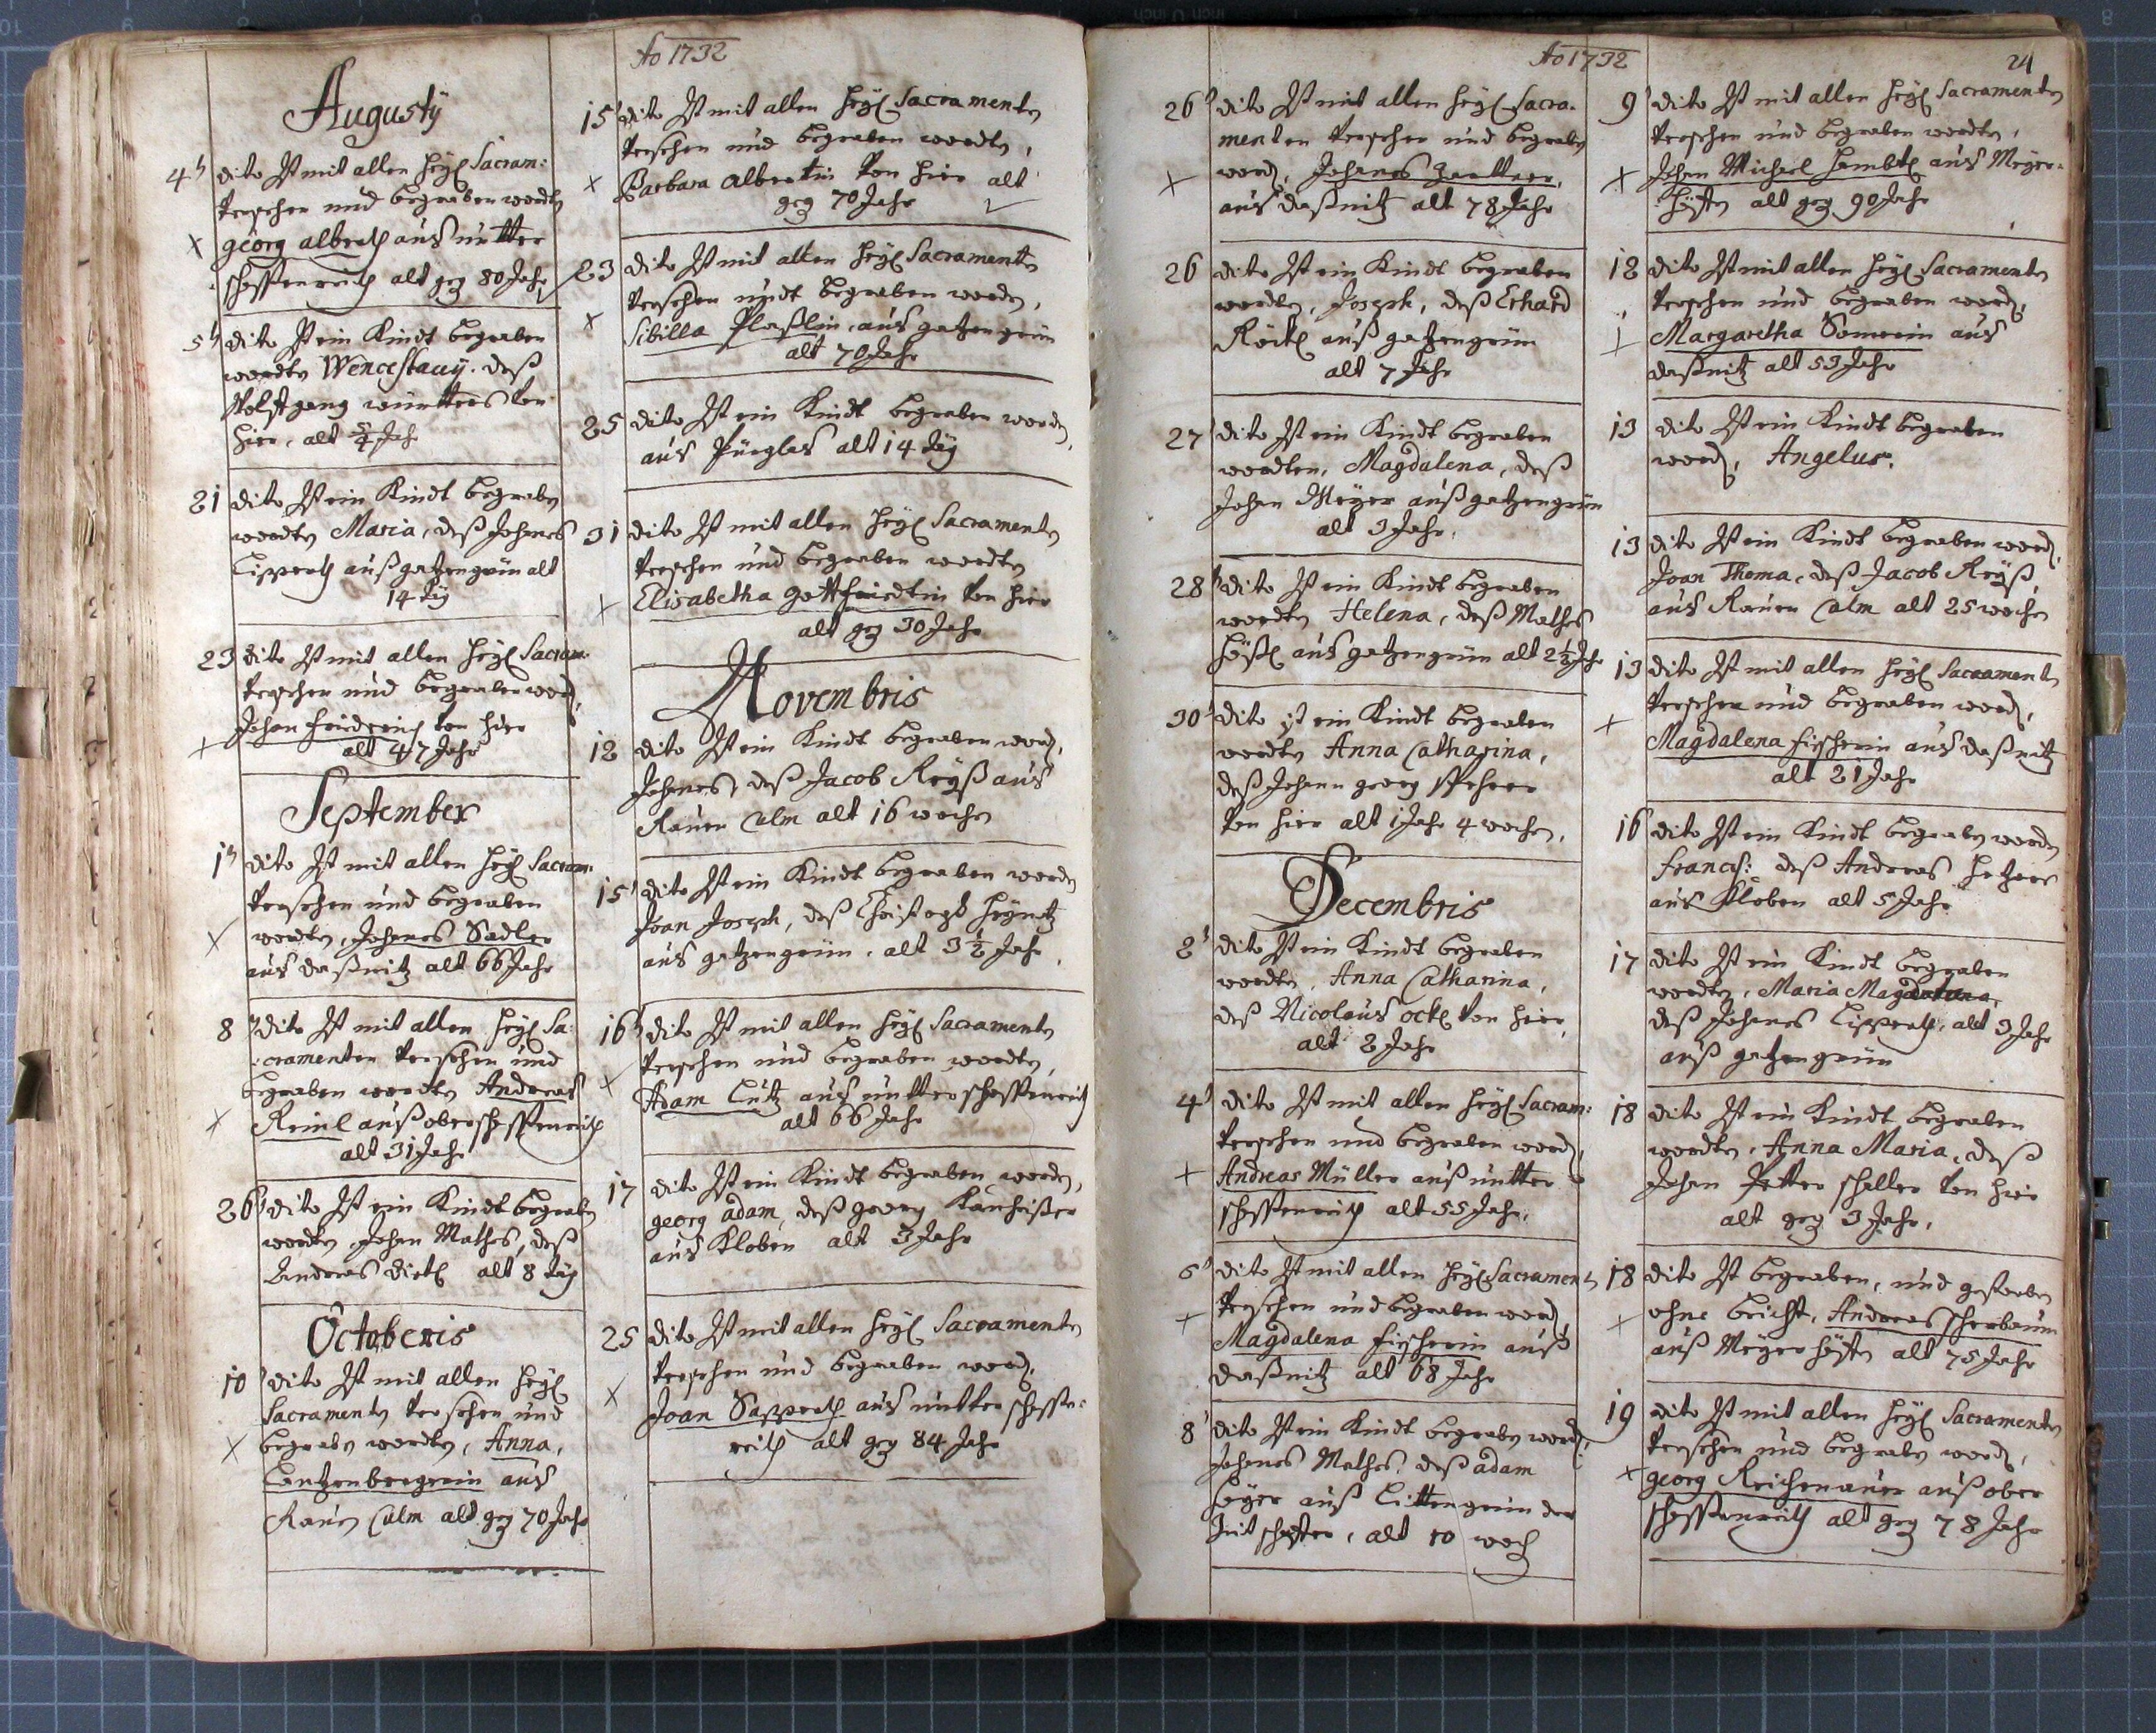 Ao 1732
Augusty
4t dito Ist mit allen heyl Sacram:
versehen und begraben worden
georg albreth aus untter
schossenreith alt geg 80 Jahr
5t dito Ist ein Kindt begraben
worden Wenceslauy. deß
Wolfgang von
hier, alt 5/4 Jahr
21 dito Ist ein Kindt begraben
worden Maria, deß Johanes
Lipperth auß gatzengrün alt
14 täg
23 dito Ist mit allen heyl Sacram:
versehen und begraben word,
Johan fridrich von hier
alt 47 Jahr
September
1t dito Ist mit allen heyl Sacram:
versehen und begraben
worden, Johanes Sadler
aus daßnitz alt 66 Jahr
8 dito Ist mit allen heyl Sa:
cramenten versehen und
begraben worden Andreas
Reinl auß oberschossenreith
alt 31 Jahr
26 dito Ist ein Kindt begraben
worden, Johan Mathes, deß
Andreas alt 8 täg
Octoberis
10 dito Ist mit allen heyl
Sacramenten versehen und
begraben worden, Anna,
Lentzenbergerin aus
Rauen Culm alt geg 70 Jahr
15 dito Ist mit allen heyl Sacramenten
versehen und begraben worden,
Barbara albertin von hier alt
geg 70 Jahr
23 dito Ist mit allen heyl Sacramenten
versehen undt begraben worden,
Sibilla Plaßlin, aus gatzengrün
alt 70 Jahr
25 dito Ist ein Kindt begraben worden,
aus Pürglas alt 14 täg
31 dito Ist mit allen heyl Sacramenten
versehen und begraben worden
Elisabetha gottfridtin von hier
alt geg 30 Jahr
Novembris
12 dito Ist ein Kindt begraben word,
Johanes, deß Jacob Reyß aus
Rauen Culm alt 16 wochen
15 dito Ist ein Kindt begraben worden
Joan Joseph, deß Christoph
aus gatzengrün, alt 3 1/2 Jahr
16 dito Ist mit allen heyl Sacramenten
versehen und begraben worden,
Adam Lutz aus untterschossenreith
alt 66 Jahr
17 dito Ist ein Kindt begraben worden,
georg adam, deß georg
aus Kloben alt 3 Jahr
25 dito Ist mit allen heyl Sacramenten
versehen und begraben word,
Joan Sapperth aus untter schossen:
reith alt geg 84 Jahr
Ao 1732
24
26 dito Ist mit allen heyl Sacra:
menten versehen und begraben
word, Johanes
aus daßnitz alt 78 Jahr
26 dito Ist ein Kindt begraben
worden, Joseph, deß Erhard
auß gatzengrün
alt 7 Jahr
27 dito Ist ein Kindt begraben
worden, Magdalena, deß
Johan Meyer auß gatzengrün
alt 3 Jahr,
28 dito Ist ein Kindt begraben
worden Helena, deß Mathes
aus gatzengrün alt 2 1/2 Jahr
30 dito ist ein Kindt begraben
worden Anna Catharina,
deß Johann georg
von hier alt 1 Jahr 4 wochen,
Decembris
2t dito Ist ein Kindt begraben
worden, Anna Catharina,
deß Nicolaus von hier,
alt 2 Jahr
4t dito Ist mit allen heyl Sacram:
versehen und begraben word,
Andreas Müller auß untter
schossenreith alt 55 Jahr,
6t dito Ist mit allen heyl Sacramenten
versehen und begraben word,
Magdalena fischerin auß
daßnitz alt 68 Jahr
8t dito Ist ein Kindt begraben word,
Johanes Mathes, deß adam
auß Littengrün der
alt 10 woch
9t dito Ist mit allen heyl Sacramenten
versehen und begraben worden,
Johan Michael aus Meyer:
höffen alt geg 90 Jahr
12 dito Ist mit allen heyl Sacramenten
versehen und begraben word,
Margaretha Somerin aus
daßnitz alt 53 Jahr
13 dito Ist ein Kindt begraben
word, Angelus.
13 dito Ist ein Kindt begraben word,
Joan Thoma, deß Jacob Reyß,
aus Rauen Culm alt 25 wochen
13 dito Ist mit allen heyl Sacramenten
versehen und begraben word,
Magdalena fischerin aus daßnitz
alt 21 Jahr
16 dito Ist ein Kindt begraben worden
francis: deß Andreas
aus Kloben alt 5 Jahr
17 dito Ist ein Kindt begraben
worden, Maria Magdalena,
deß Johanes Lipperth, alt 3 Jahr
auß gatzengrün
18 dito Ist ein Kindt begraben
worden, Anna Maria, deß
Johan Petter schaller von hier
alt geg 3 Jahr,
18 dito Ist begraben, und gestorben
ohne beicht, Andreas scherbaum
auß Meyerhöffen alt 75 Jahr
19 dito Ist mit allen heyl Sacramenten
versehen und begraben word,
georg Reichenauer auß ober
schossenreith alt geg 78 Jahr